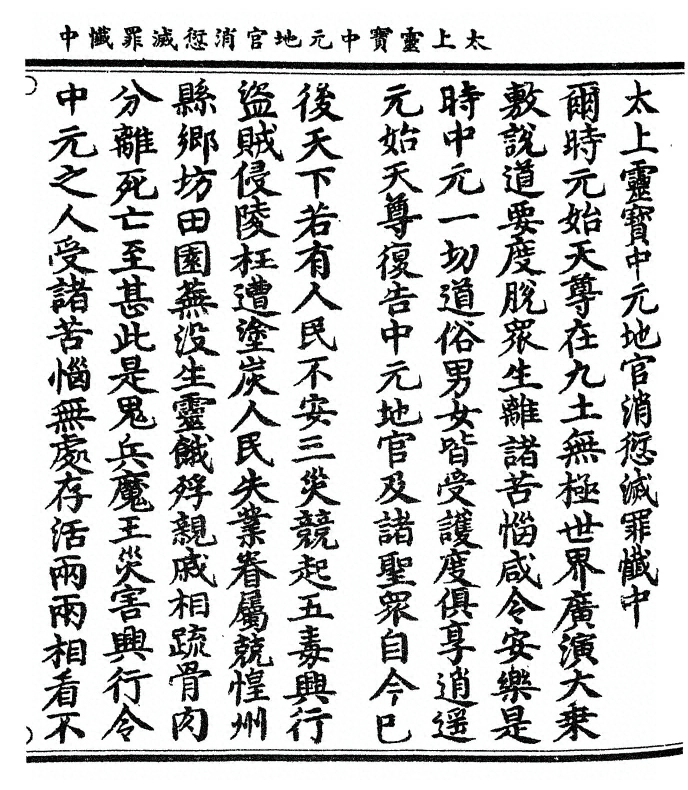 太上靈寶中元地官消愆滅罪懺中
太上靈寶中元地官消愆滅罪懺中
爾時元始天尊在九土無極世界廣演大乗
敷說道要度脫眾生離諸苦惱咸令安樂是
時中元一切道俗男女皆受護度俱享逍遥
元始天尊復告中元地官及諸聖眾自今已
後天下若有人民不安三災競起五毒興行
盜賊侵陵枉遭塗炭人民失業眷屬兢惶州
縣鄉坊田園蕪没生靈餓殍親戚相踈骨肉
分離死亡至甚此是鬼兵魔王災害興行令
中元之人受諸苦惱無處存活兩兩相看不